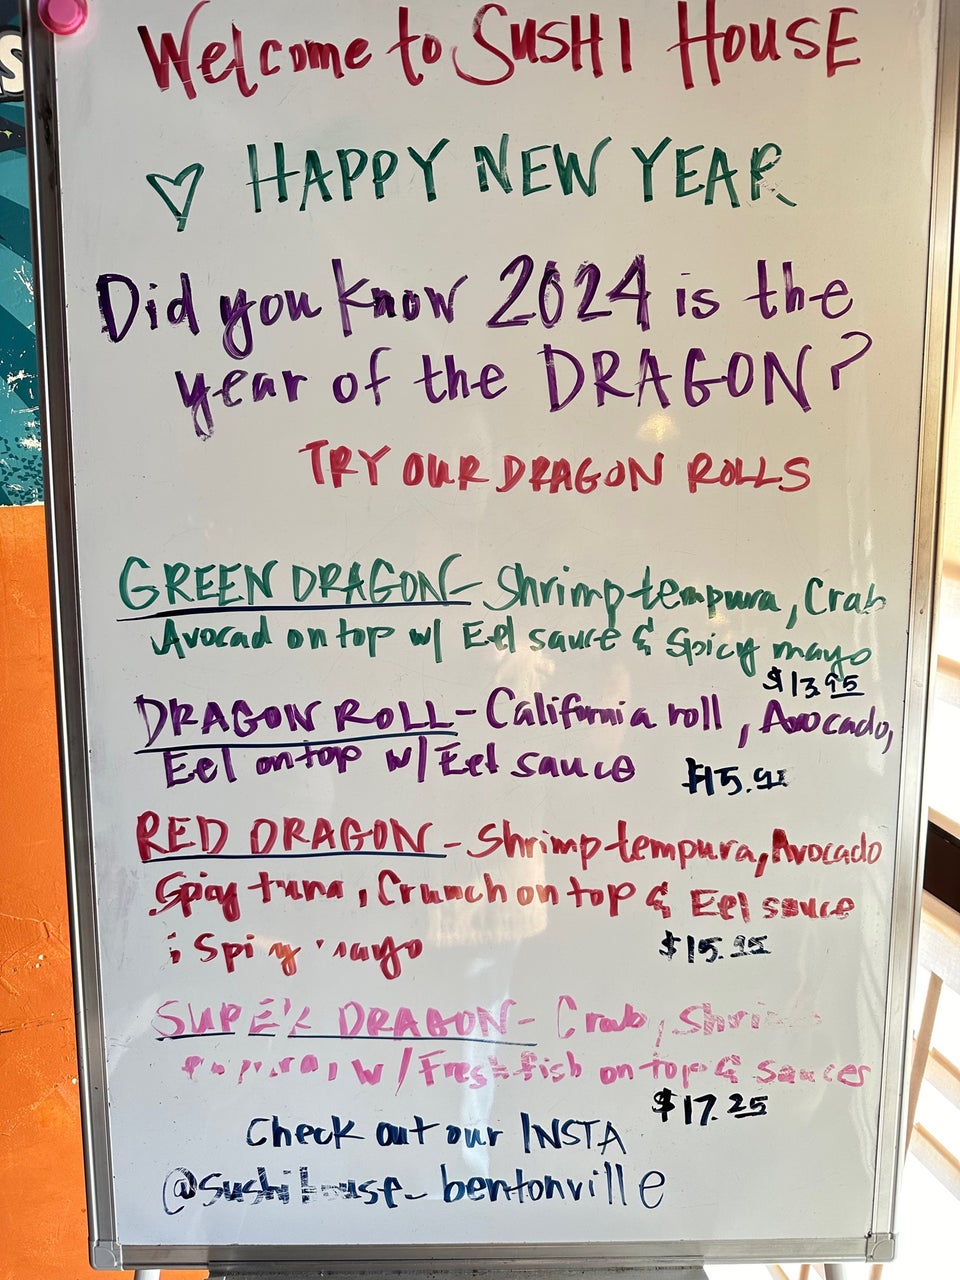 Welcome to SUSHI HOUSE
HAPPY NEW YEAR
Did you know 2024 is the
year of the DRAGON?
TRY OUR DRAGON ROLLS
GREEN DRAGON - Shrimp tempura, Crab
Avocad on top w/ Eel sauce & Spicy mayo
$13.95
DRAGON ROLL - California roll, Avocado,
Eel on top w/ Eel sauce
RED DRAGON - Shrimp tempura, Avocado
Spicy tuna, Crunch on top & Eel sauce
$15.95
SUPER DRAGON - Crab,
w/ Fresh fish on top & sauces
$17.25
Check out our INSTA
@sushihouse_bentonville